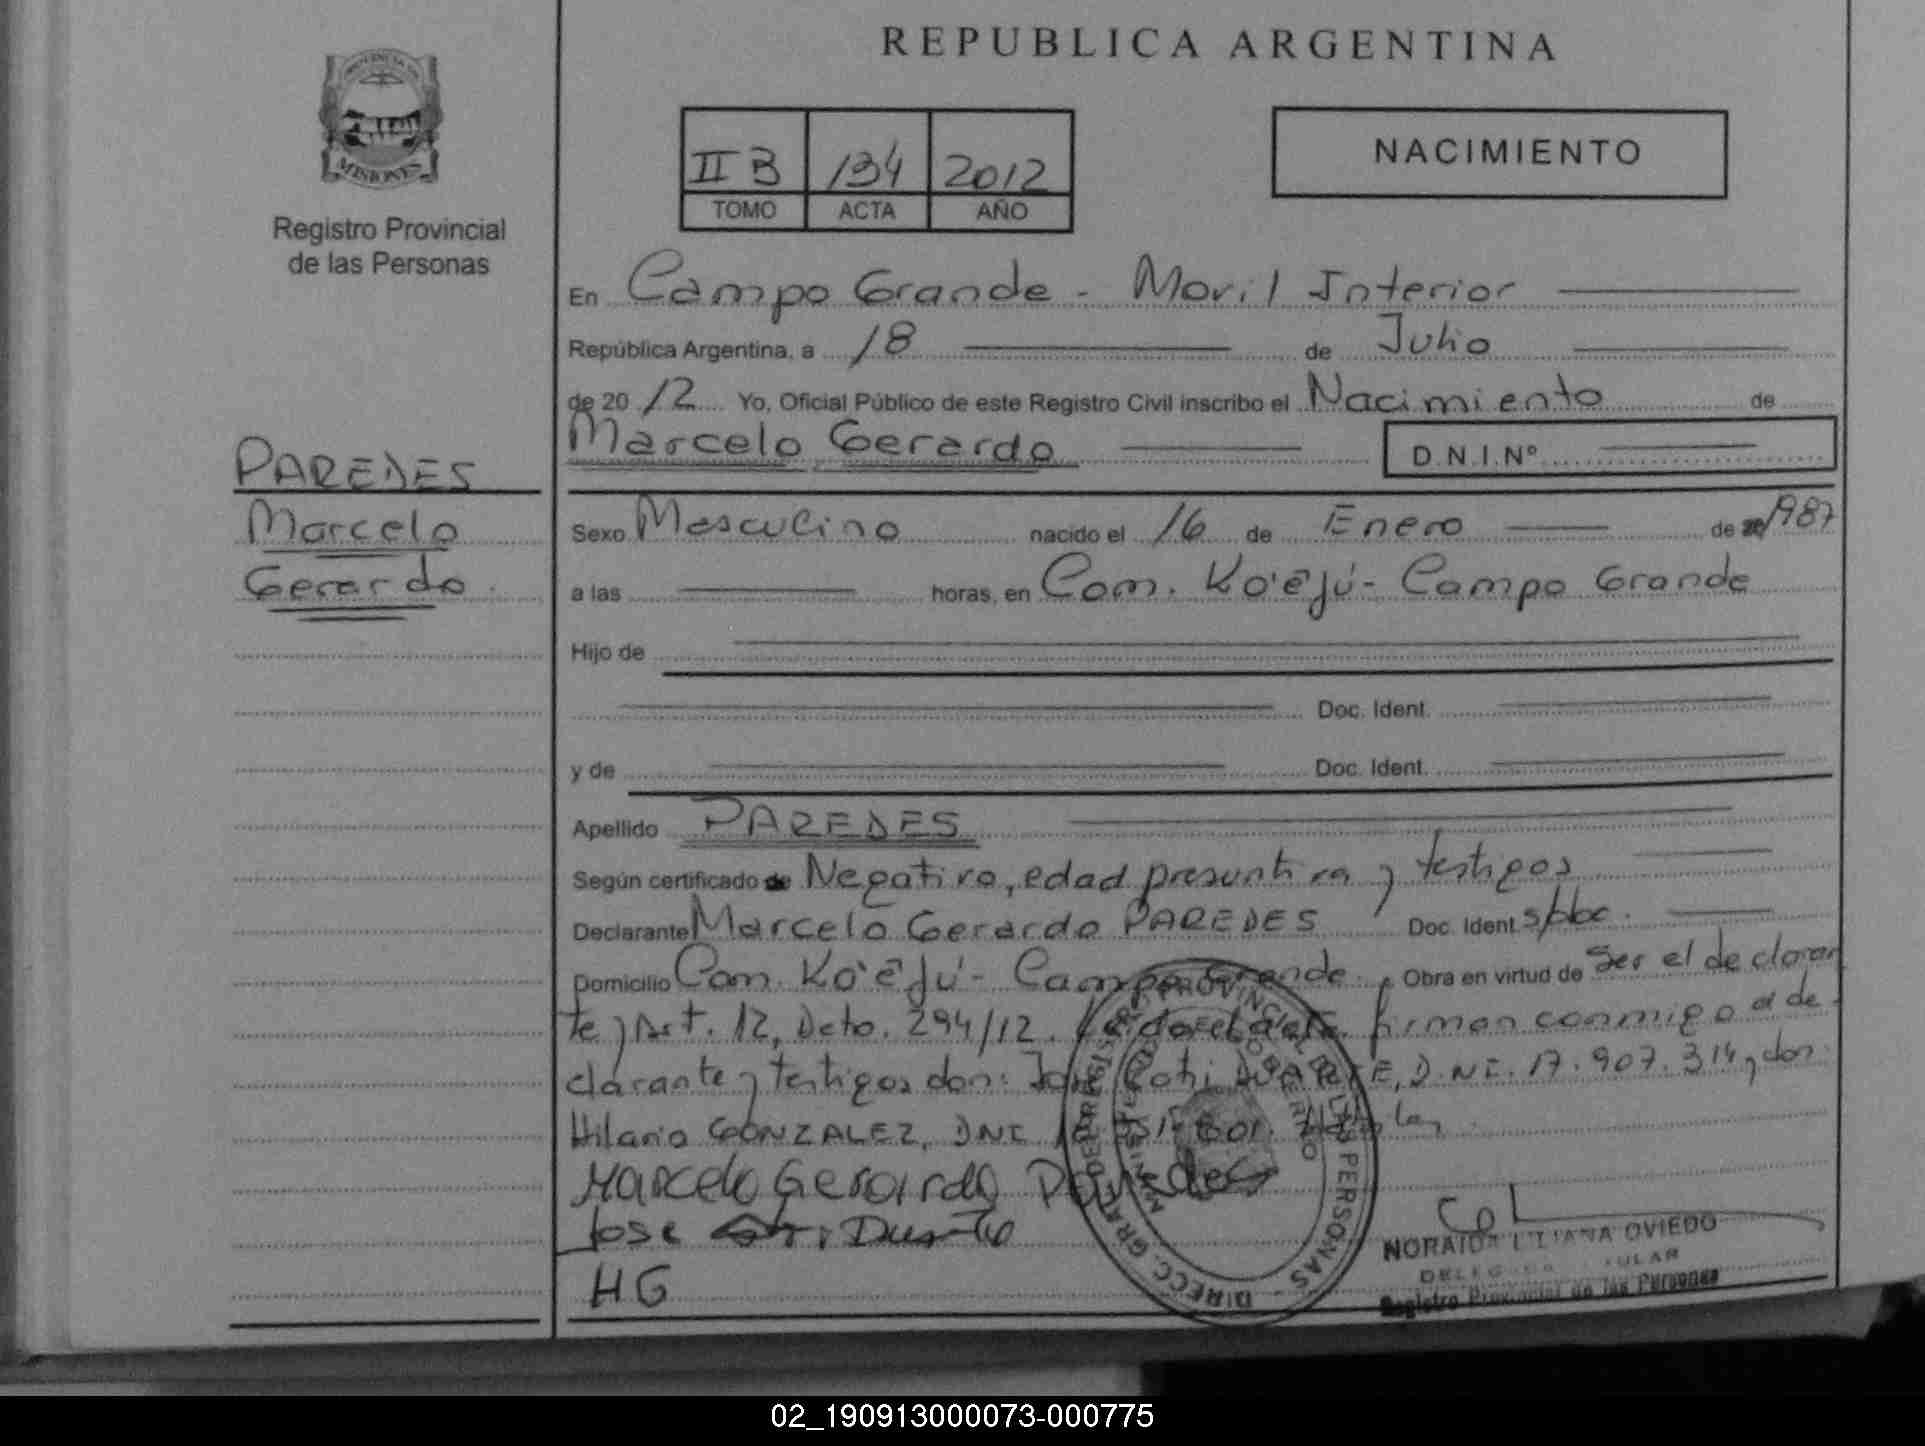 REPUBLICA ARGENTINA
PROVINCIA DE
MISIONES
Registro Provincial
de las Personas
II B 134 2012
TOMO ACTA AÑO
NACIMIENTO
En Campo Grande - Movil Interior
República Argentina, a 18 de Julio
de 2012 Yo, Oficial Público de este Registro Civil inscribo el Nacimiento de
Marcelo Gerardo D.N.I.Nº
PAREDES
Marcelo
Gerardo.
Sexo Masculino nacido el 16 de Enero de 1987
a las horas, en Com. Ko'ẽjú - Campo Grande
Hijo de
Doc. Ident.
y de Doc. Ident.
Apellido PAREDES
Según certificado de Negativo, edad presuntiva y testigos
Declarante Marcelo Gerardo PAREDES Doc. Ident. s/doc.
Domicilio Com. Ko'ẽjú - Campo Grande. Obra en virtud de Ser el declaran
te y Art. 12, Dcto. 294/12. firman conmigo el de-
clarante y testigos don: José DUARTE, D.N.I. 17.907.314 y don
Hilario GONZALEZ, DNI
Marcelo Gerardo Paredes
Jose Duarte
HG
DIRECC. GRAL. DEL REGISTRO PROVINCIAL DE LAS PERSONAS
MINISTERIO DE GOBIERNO
NORAIDA LILIANA OVIEDO
Registro Provincial de las Personas
02_190913000073-000775